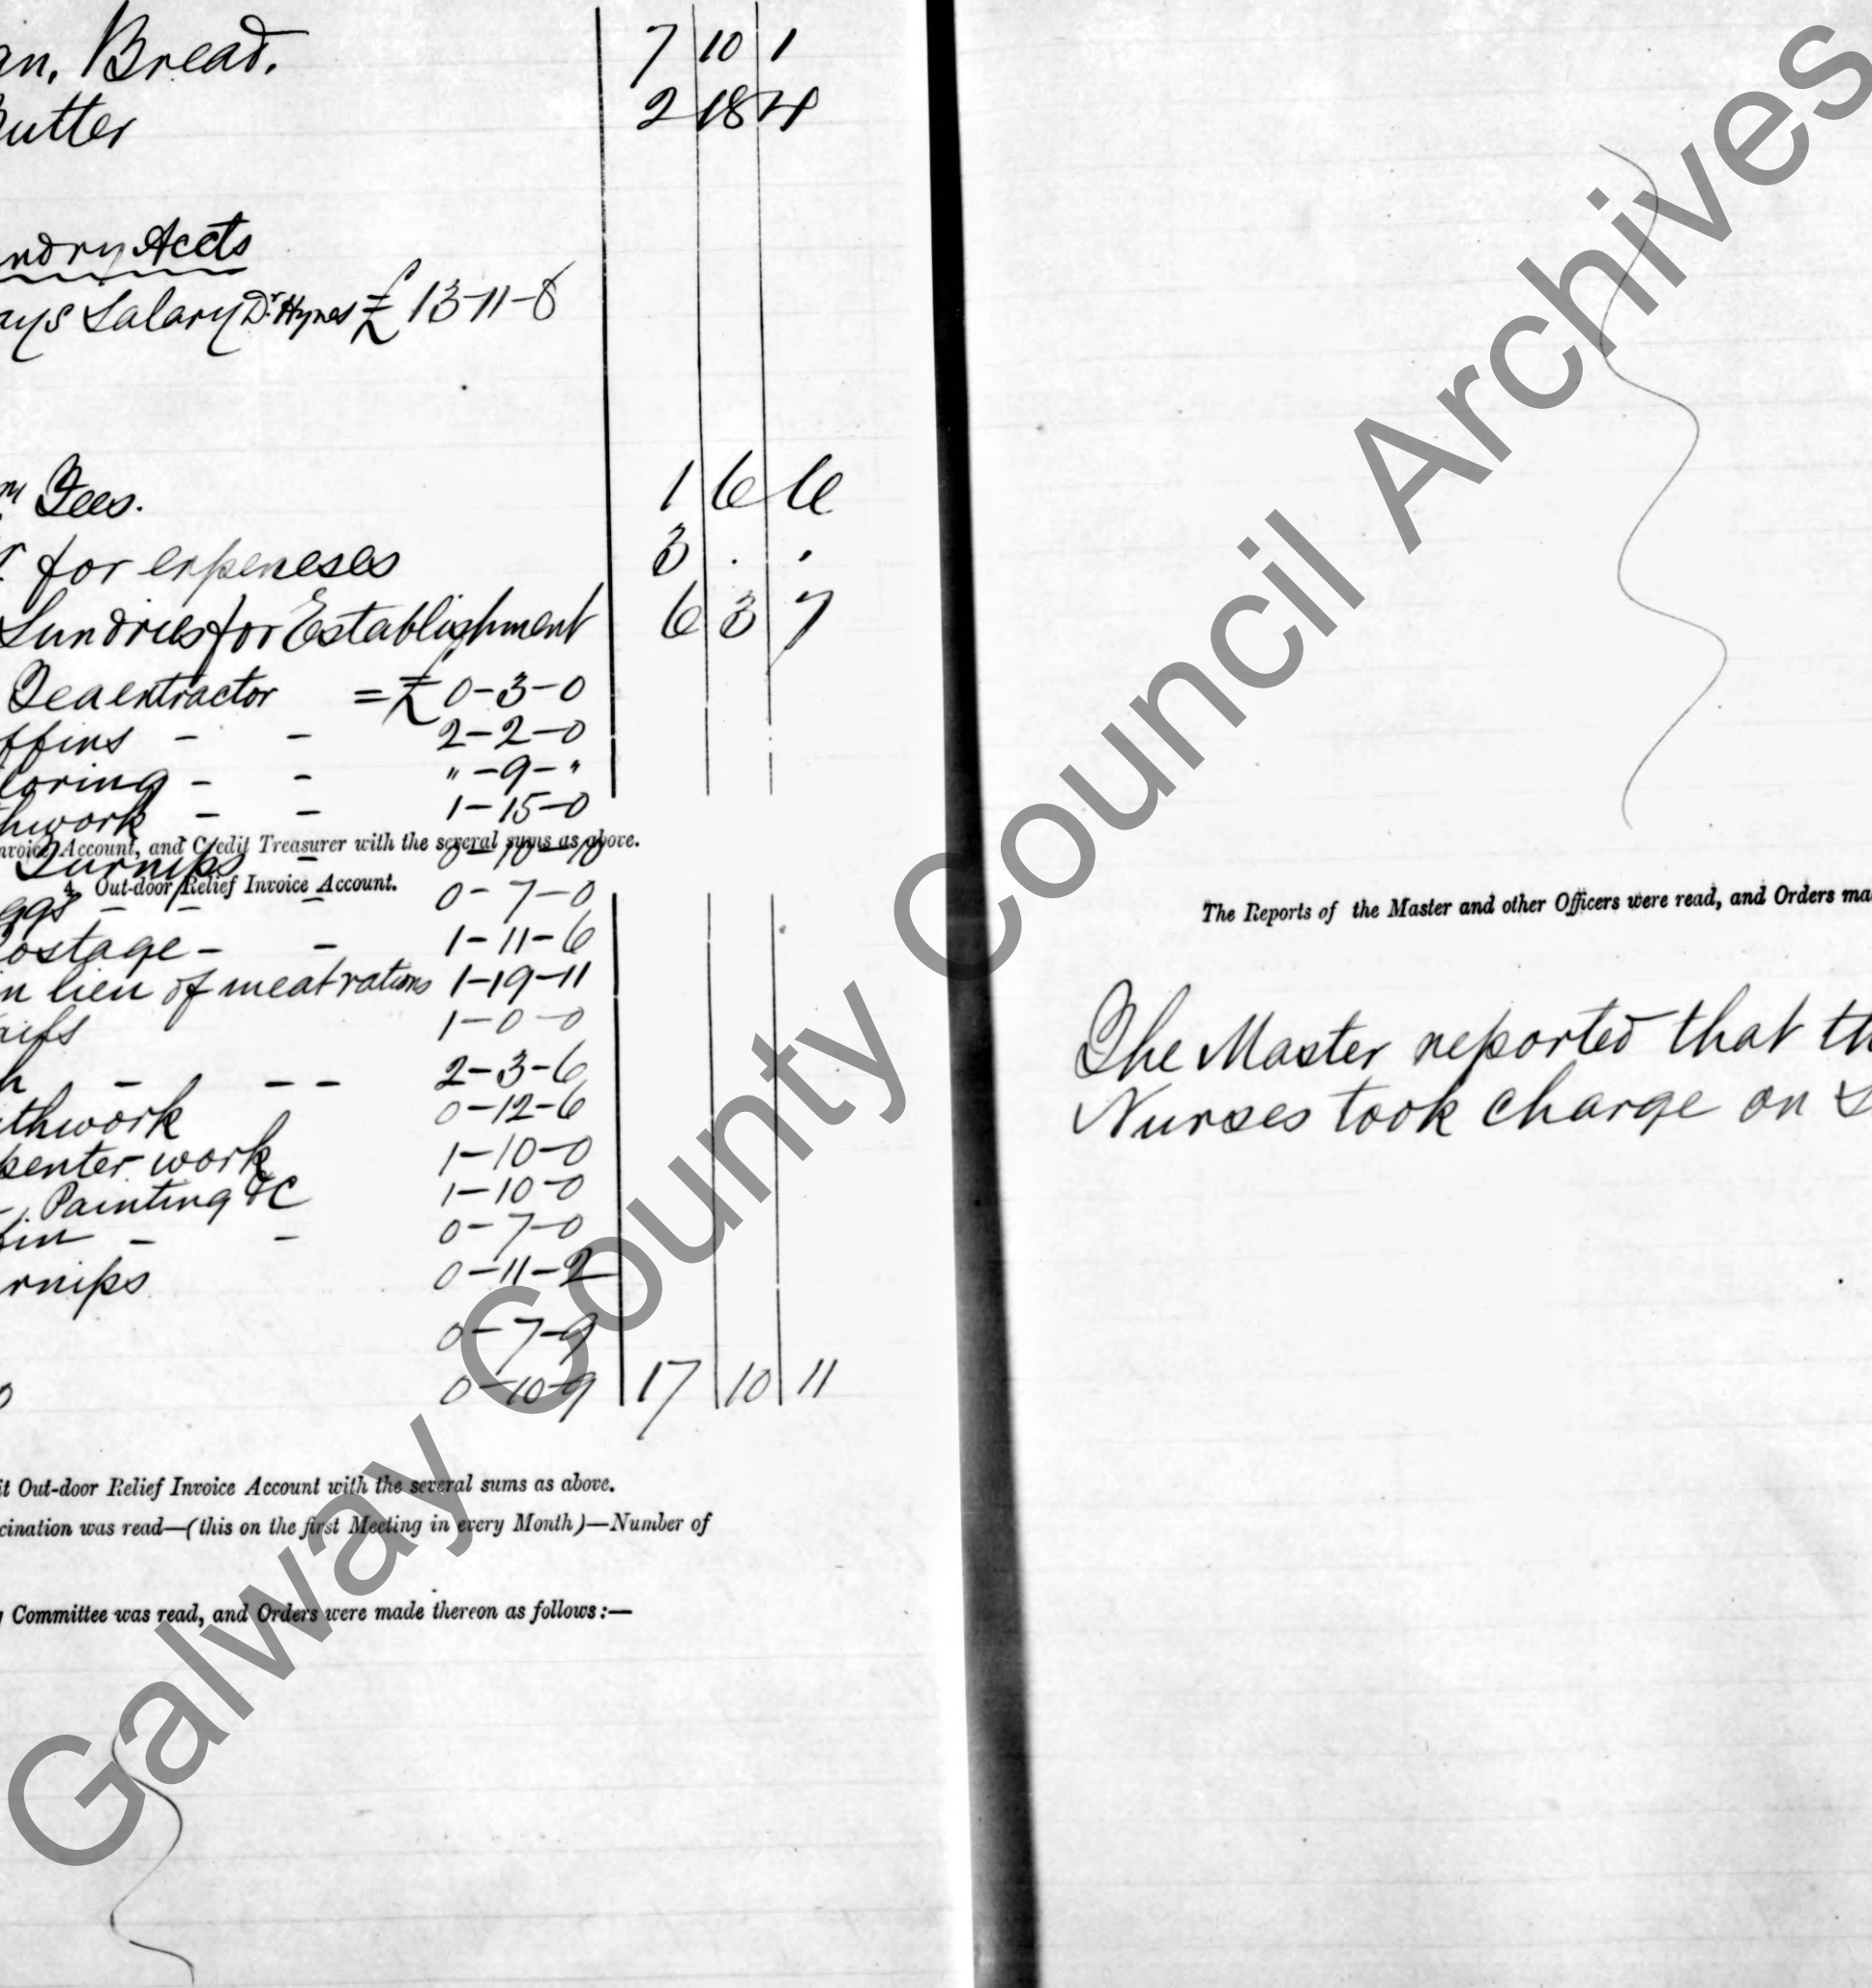 an, Bread. 7 10 1
Butter 2 18 4
undry Accts
ays Salary Dr. Hynes £ 13-11-8
Fees. 1 6 6
for expeneses 3 . .
Sundries for Establishment 6 3 7
Teaextractor = £ 0-3-0
ffins - - 2-2-0
loring - - " -9- "
thwork - - 1-15-0
nvoice Account, and Credit Treasurer with the several sums as above.
Turnips - 0-10-10
4. Out-door Relief Invoice Account.
ggs - - - 0-7-0
ostage - - 1-11-6
in lieu of meat rations 1-19-11
1-0-0
h - - - 2-3-6
ithwork 0-12-6
penter work 1-10-0
-, Painting &C 1-10-0
fin - - 0-7-0
urnips 0-11-2
0-7-9
0-10-9 17 10 11
it Out-door Relief Invoice Account with the several sums as above.
cination was read—(this on the first Meeting in every Month)—Number of
g Committee was read, and Orders were made thereon as follows:—
The Reports of the Master and other Officers were read, and Orders ma
The Master reported that th
Nurses took charge on S
Galway County Council Archives